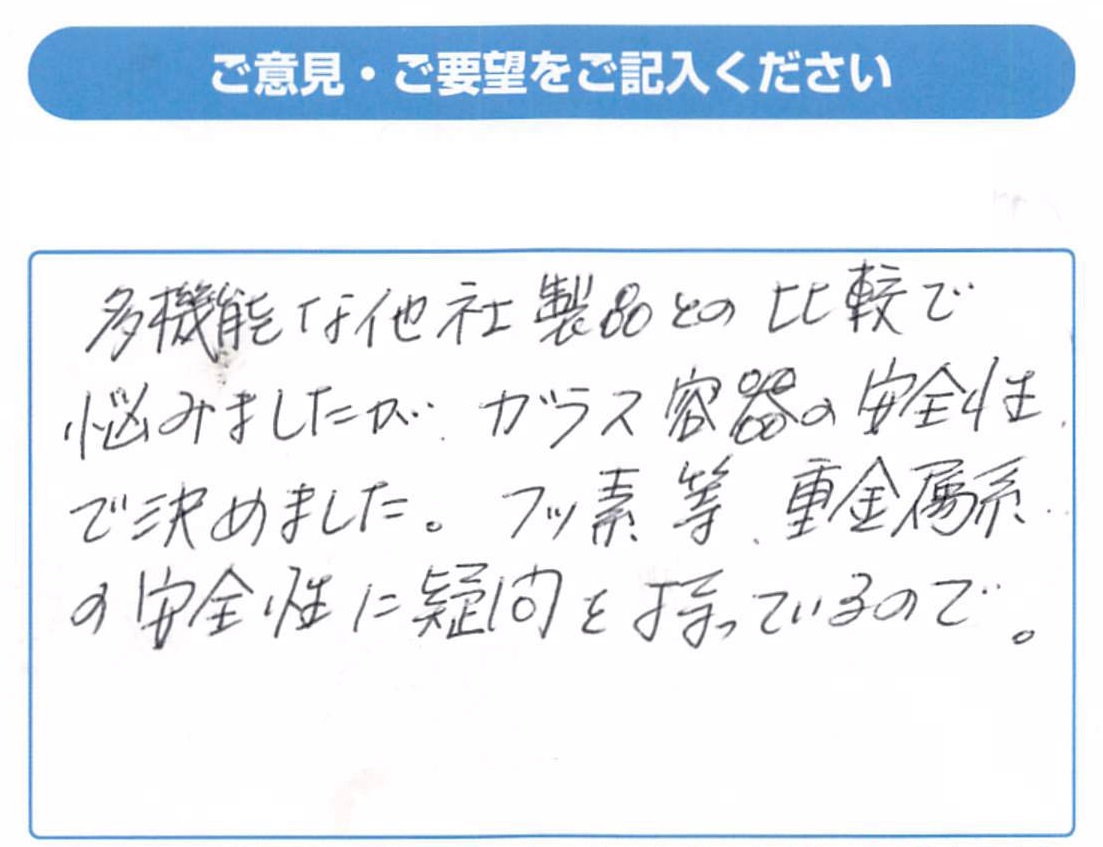 ご意見・ご要望をご記入ください
多機能な他社製品との比較で
悩みましたが、ガラス容器の安全性
で決めました。フッ素等、重金属系
の安全性に疑問を持っているので。